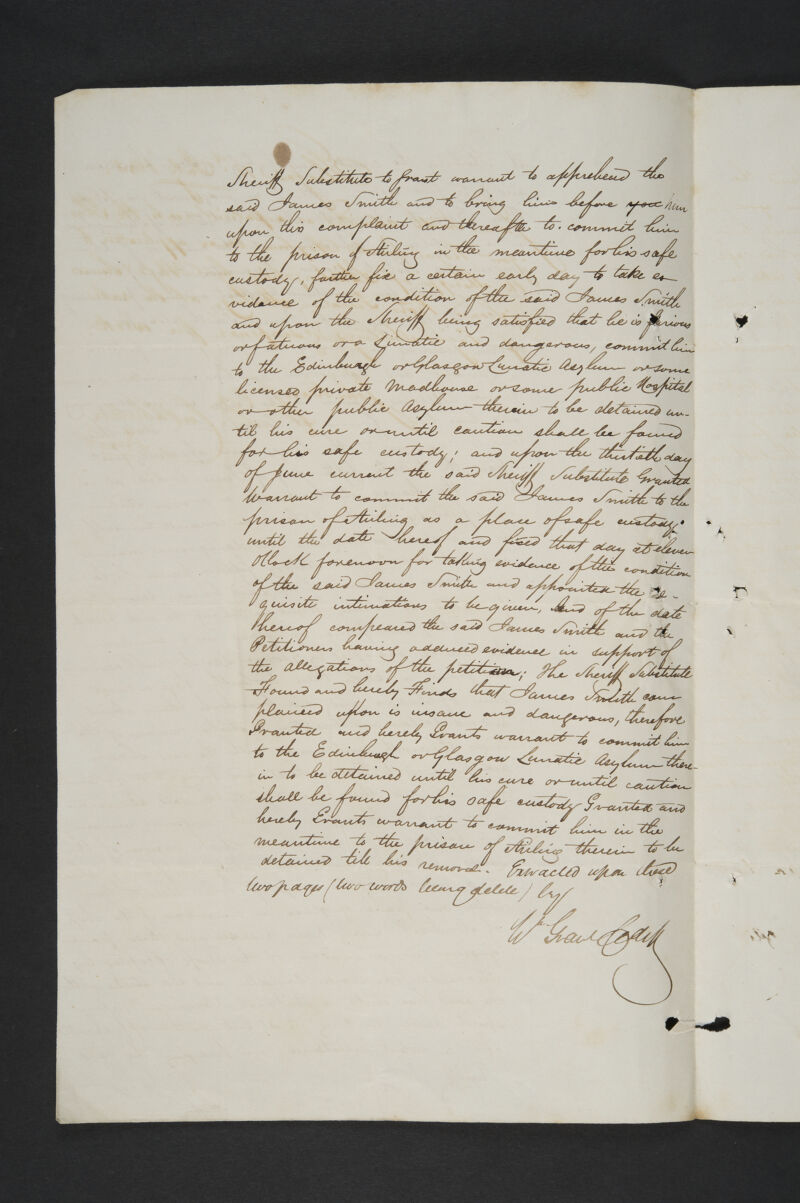 Sheriff Substitute to grant warrant to apprehend the
said James Smith and to bring him before you him
upon this complaint and thereafter to commit him
to the prison of Stirling in the meantime for his safe
custody, further fix a certain early day to take e-
vidence of the condition of the said James Smith
and upon the Sheriff being satisfied that he is furious
or fatuous or a Lunatic and dangerous, commit him
to the Edinburgh or Glasgow Lunatic Asylum or some
licensed private Madhouse or some public Hospital
or other public Asylum therein to be detained un-
til his cure or until caution shall be found
for his safe custody; and upon the thirtieth day
of June current the said Sheriff Substitute Granted
Warrant to commit the said James Smith to the
prison of Stirling as a place of safe custody
until the date hereof and fixed that day at eleven
OClock forenoon for taking evidence of the condition
of the said James Smith and appointed the re-
quisite intimations to be given, And of the date
hereof compeared the said James Smith and the
Petitioners having adduced evidence in support of
the allegations of the petition; The Sheriff Substitute
Found and hereby Finds that James Smith com
plained upon is insane and dangerous, therefore
Granted and hereby Grants warrant to commit him
to the Edinburgh or Glasgow Lunatic Asylum there-
in to be detained until his cure or until caution
shall be found for his safe custody Granted and
hereby Grants warrant to commit him in the
meantime to the prison of Stirling therein to be
detained till his removal. Extracted upon these
two pages (two words being delete) by
Wm Grant